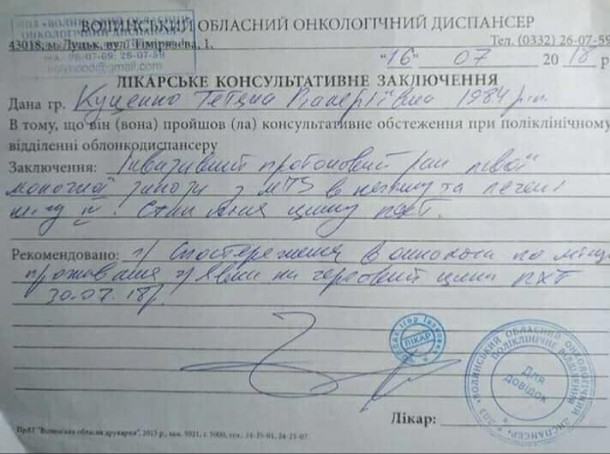 ВОЛИНСЬКИЙ ОБЛАСНИЙ ОНКОЛОГІЧНИЙ ДИСПАНСЕР
43018, м. Луцьк, вул. Тімірязєва, 1. Тел. (0332) 26-07-59
"16" 07 2018 р
ЛІКАРСЬКЕ КОНСУЛЬТАТИВНЕ ЗАКЛЮЧЕННЯ
Дана гр. Куценко Тетяна Валеріївна 1984 р.н.
В тому, що він (вона) пройшов (ла) консультативне обстеження при поліклінічному
відділенні облонкодиспансеру
Заключення: Інвазивний протоковий рак лівої
молочної залози з MTS в печінку та легені
Стан після циклу ПХТ.
Рекомендовано: Спостереження в онколога по місцю
проживання явка на черговий цикл ПХТ
30.07.18р.
ЛІКАР
ВОЛИНСЬКИЙ ОБЛАСНИЙ ОНКОЛОГІЧНИЙ ДИСПАНСЕР
ПОЛІКЛІНІЧНЕ ВІДДІЛЕННЯ
Для
довідок
Лікар:
ПрАТ "Волинська обласна друкарня", 2015 р., зам. 5021, т. 5000, тел. 24-25-07